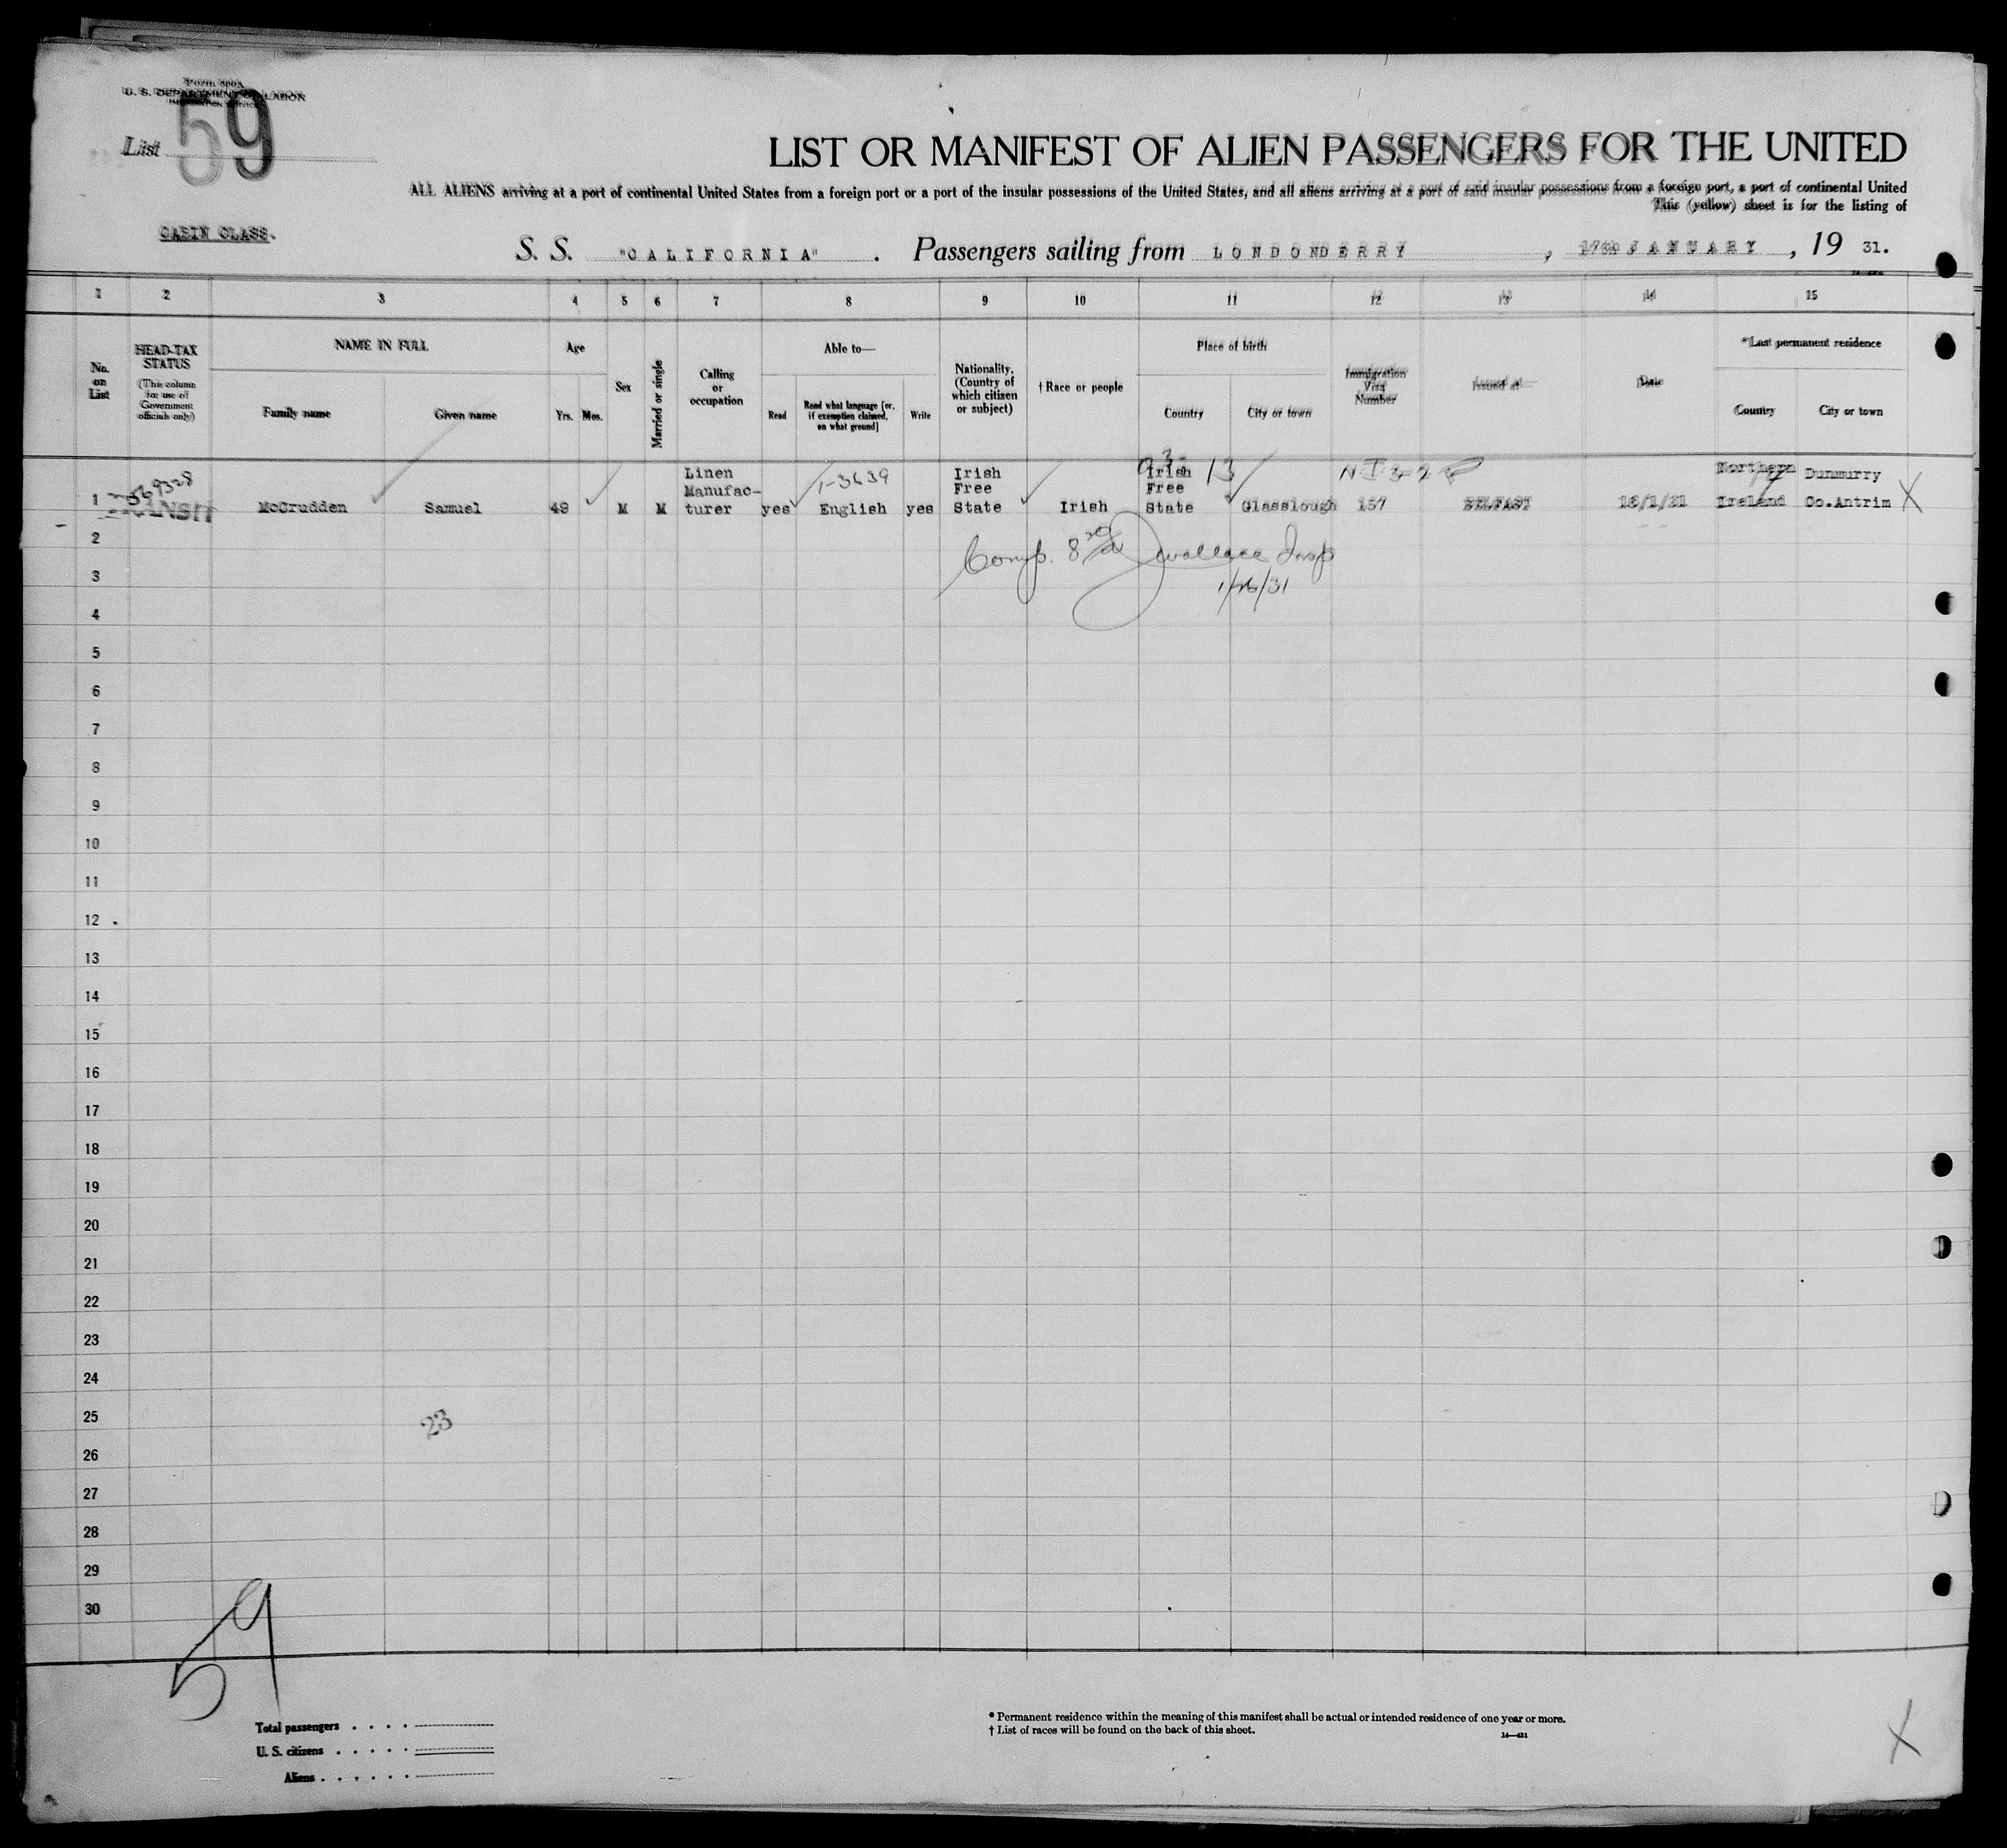 Form 500A
U. S. DEPARTMENT OF LABOR
IMMIGRATION SERVICE
List 59
LIST OR MANIFEST OF ALIEN PASSENGERS FOR THE UNITED
ALL ALIENS arriving at a port of continental United States from a foreign port or a port of the insular possessions of the United States, and all aliens arriving at a port of said insular possessions from a foreign port, a port of continental United
This (yellow) sheet is for the listing of
CABIN CLASS.
S. S. "CALIFORNIA" . Passengers sailing from LONDONDERRY , 17th JANUARY , 19 31.
1 2 3 4 5 6 7 8 9 10 11 12 13 14 15
No. on List
HEAD-TAX STATUS
(This column for use of Government officials only)
NAME IN FULL
Family name Given name
Age
Yrs. Mos.
Sex
Married or single
Calling or occupation
Able to—
Read
Read what language [or, if exemption claimed, on what ground]
Write
Nationality. (Country of which citizen or subject)
† Race or people
Place of birth
Country City or town
Immigration Visa Number
Issued at—
Date
* Last permanent residence
Country City or town
1 569328 TRANSIT McCrudden Samuel 49 M M Linen Manufac-turer yes 1-3639 English yes Irish Free State Irish Irish Free State 13 Glasslough 157 BELFAST 16/1/31 Northern Ireland Dunmurry Co.Antrim X
2
Comp. 8 Wallace Insp
3
1/26/31
4
5
6
7
8
9
10
11
12
13
14
15
16
17
18
19
20
21
22
23
24
25
23
26
27
28
29
30
59
Total passengers . . . .
U. S. citizens . . . . .
Aliens . . . . . .
* Permanent residence within the meaning of this manifest shall be actual or intended residence of one year or more.
† List of races will be found on the back of this sheet.
14—431
X